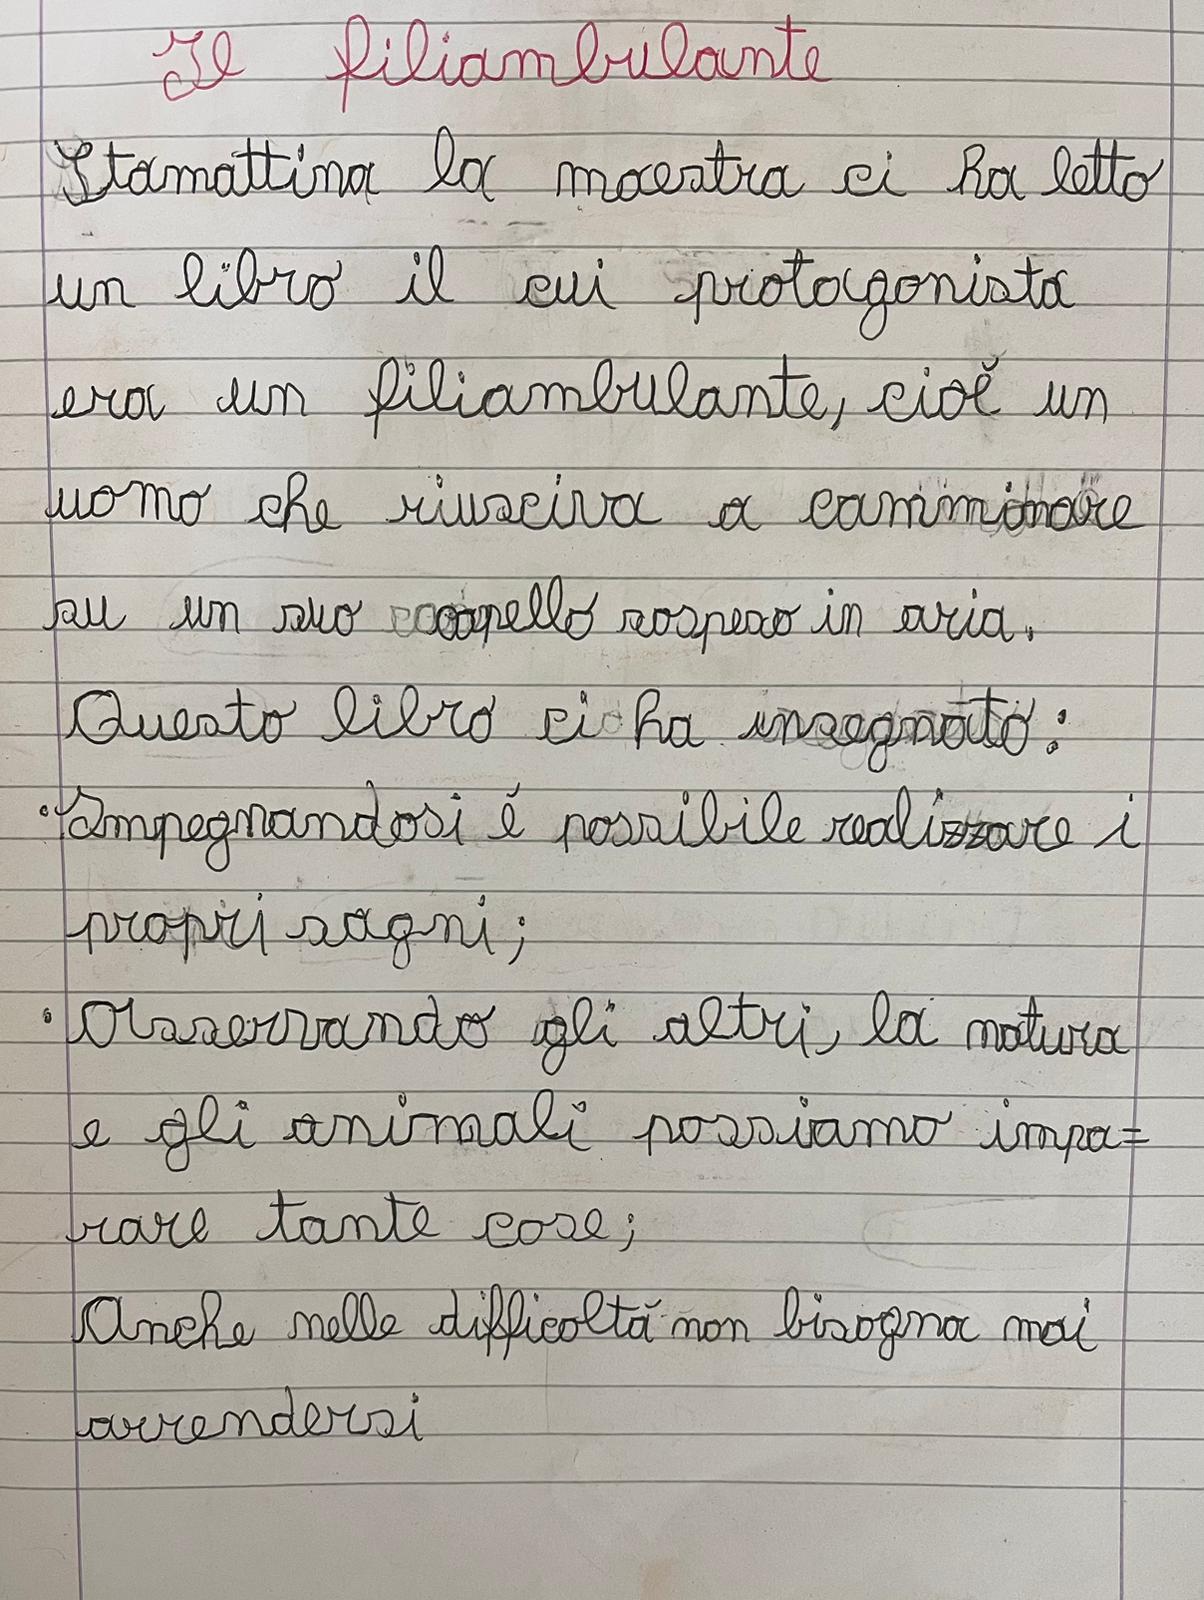 Il filiambulante
Stamattina la maestra ci ha letto
un libro il cui protagonista
era un filiambulante, cioè un
uomo che riusciva a camminare
su un suo capello sospeso in aria.
Questo libro ci ha insegnato:
• Impegnandosi é possibile realizzare i
propri sogni;
• Osservando gli altri, la natura
e gli animali possiamo impa=
rare tante cose;
Anche nelle difficoltà non bisogna mai
arrendersi